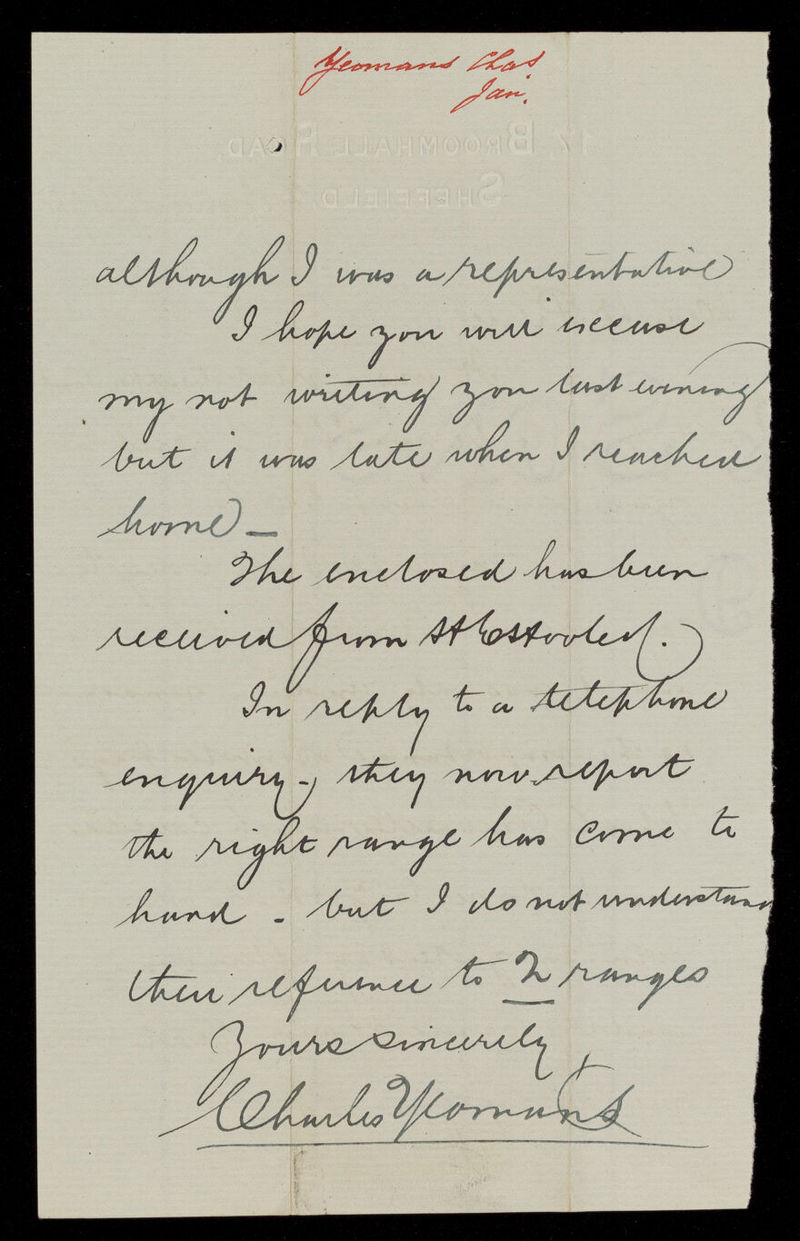 Yeomans Chas
Jan.
17 BROOMHALE ROAD.
SHEFFIELD
although I was a representative
I hope you will excuse
my not writing you last evening
but it was late when I reached
home —
The enclosed has been
received from
In reply to a telephone
enquiry - they now report
the right range has come to
hand - but I do not understand
their reference to 2 ranges
Yours sincerely,
Charles Yeomans